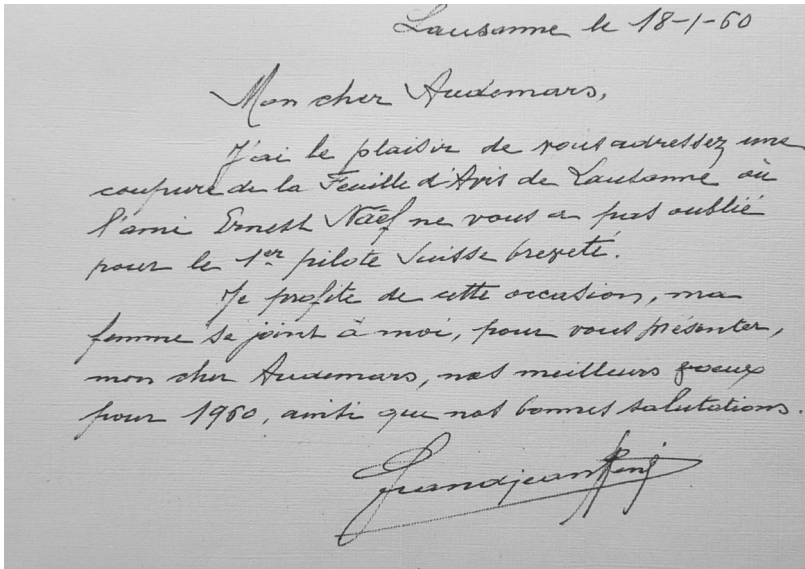 Lausanne le 18-1-60
Mon cher Audemars,
J'ai le plaisir de vous adressez une
coupure de la Feuille d'Avis de Lausanne où
l'ami Ernest Naëf ne vous a pas oublié
pour le 1er pilote Suisse breveté.
Je profite de cette occasion, ma
femme se joint à moi, pour vous présenter,
mon cher Audemars, nos meilleurs voeux
pour 1960, ainsi que nos bonnes salutations.
Grandjean René